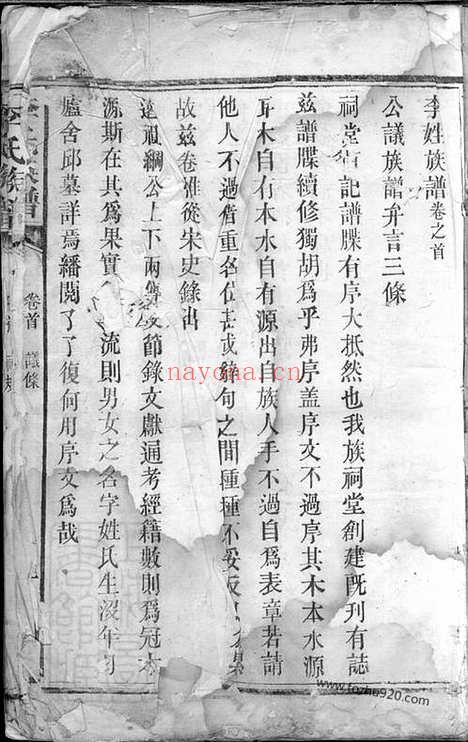 李姓族譜卷之首
公議族譜弁言三條
祠堂有記譜牒有序大抵然也我族祠堂創建既刊有誌
茲譜牒續修獨胡爲乎弗序蓋序文不過序其木本水源
耳木自有本水自有源出自族人手不過自爲表章若請
他人不過借重名位甚或結句之間種種不妥反
故茲卷雖從宋史錄出
遠祖綱公上下兩雙 節錄文獻通考經籍數則爲冠木
源斯在其爲果實 流則男女之名字姓氏生沒年月
廬舍邱墓詳焉繙閱了了復何用序文爲哉
李氏族譜
卷首 議條
nayona.cn
www.fozhu920.com